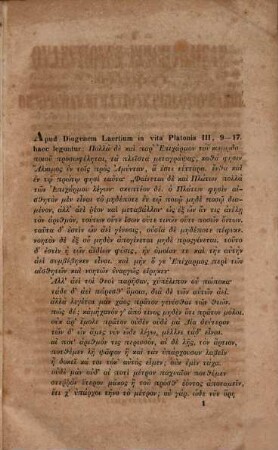 Apud Diogenem Laertium in vita Platonis III, 9—17.
haec leguntur: Πολλὰ δὲ καὶ παρ' Ἐπιχάρμου τοῦ κωμῳδο-
ποιοῦ προσωφέληται, τὰ πλεῖστα μεταγράψας, καθά φησιν
Ἄλκιμος ἐν τοῖς πρὸς Ἀμύνταν, ἅ ἐστι τέτταρα. ἔνθα καὶ
ἐν τῷ πρώτῳ φησὶ ταῦτα· Φαίνεται δὲ καὶ Πλάτων πολλὰ
τῶν Ἐπιχάρμου λέγων· σκεπτέον δέ. ὁ Πλάτων φησὶν αἰ-
σθητὸν μὲν εἶναι τὸ μηδέποτε ἐν τῷ ποιῷ μηδὲ ποσῷ δια-
μένον, ἀλλ' ἀεὶ ῥέον καὶ μεταβάλλον· ὡς ἐξ ὧν ἄν τις ἀνέλῃ
τὸν ἀριθμόν, τούτων οὔτε ἴσων οὔτε τινῶν οὔτε ποσῶν ὄντων.
ταῦτα δ' ἐστὶν ὧν ἀεὶ γένεσις, οὐσία δὲ μηδέποτε πέφυκε.
νοητὸν δὲ ἐξ οὗ μηδὲν ἀπογίνεται μηδὲ προσγίνεται. τοῦτο
δ' ἐστὶν ἡ τῶν ἀϊδίων φύσις, ἣν ὁμοίαν τε καὶ τὴν αὐτὴν
ἀεὶ συμβέβηκεν εἶναι. καὶ μὴν ὅ γε Ἐπίχαρμος περὶ
τῶν αἰσθητῶν καὶ νοητῶν ἐναργῶς εἴρηκεν·
Ἀλλ' ἀεὶ τοὶ θεοὶ παρῆσαν, χὐπέλιπον οὐ πώποκα·
τάδε δ' ἀεὶ πάρεσθ' ὅμοια, διὰ δὲ τῶν αὐτῶν ἀεί.
ἀλλὰ λέγεται μὰν χάος πρᾶτον γενέσθαι τῶν θεῶν.
πῶς δέ; κἀμήχανόν γ' ἀπὸ τίνος μηδὲν ὅτι πρᾶτον μόλοι.
οὐκ ἄρ' ἔμολε πρᾶτον οὐθὲν οὐδὲ μὰ Δία δεύτερον
τῶν δ' ὧν ἁμὲς νῦν ὧδε λέγω, μέλλει τάδ' εἶναι.
αἰ ποτ' ἀριθμόν τις περισσόν, αἰ δὲ λῇς, πὸτ ἄρτιον,
ποτθέμειν λῇ ψᾶφον ἢ καὶ τᾶν ὑπαρχουσᾶν λαβεῖν
ἦ δοκεῖ κά τοι τὸν αὐτὸν εἶμεν; οὐκ ἐμίν γα κά.
οὐδὲ μὰν οὐδ' αἰ ποτὶ μέτρον παχυαῖον ποτθέμειν
στερρὸν ἕτερον μᾶκος ἢ τοῦ πρόσθ' ἐόντος ἀποταμεῖν,
ἔτι χ' ὑπάρχοι τῆνο τὸ μέτρον; οὐ γάρ. ὧδε νῦν ὅρη
1